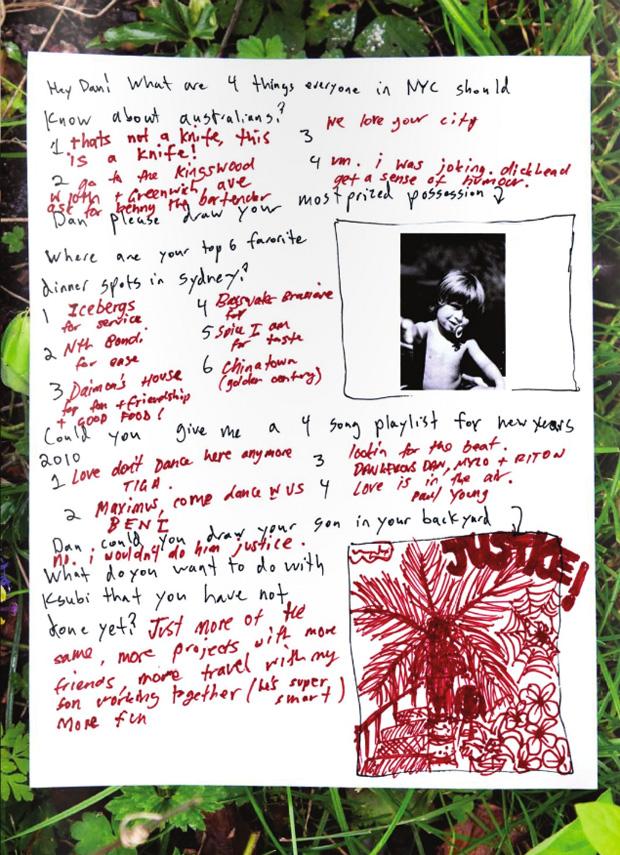 Hey Dan! What are 4 things everyone in NYC should
Know about australians?
1 thats not a knife, this
is a knife!
2 go to the Kingswood
W 10th + Greenwich ave
ask for benny the bartender
3 we love your city
4 um. i was joking. dickhead
get a sense of humour.
Dan please draw your most prized possession
Where are your top 6 favorite
dinner spots in Sydney?
1 Icebergs
for service
2 Nth Bondi
for ease
3 Daimon's House
for fun + friendship
+ GOOD FOOD!
4 Brasserie
for
5 Spice I am
for taste
6 Chinatown
(golden century)
Could you give me a 4 song playlist for new years
2010
1 Love don't Dance here anymore
TIGA.
2 Maximus, come dance W US
BENI
3 lookin for the beat.
DANGEROUS DAN, MYLO + RITON
4 Love is in the air.
Paul Young
Dan, could you draw your son in your backyard
no. i wouldn't do him justice.
JUSTICE!
What do you want to do with
Ksubi that you have not
done yet? Just more of the
same, more projects with more
friends, more travel with my
son working together (he's super
smart)
more fun